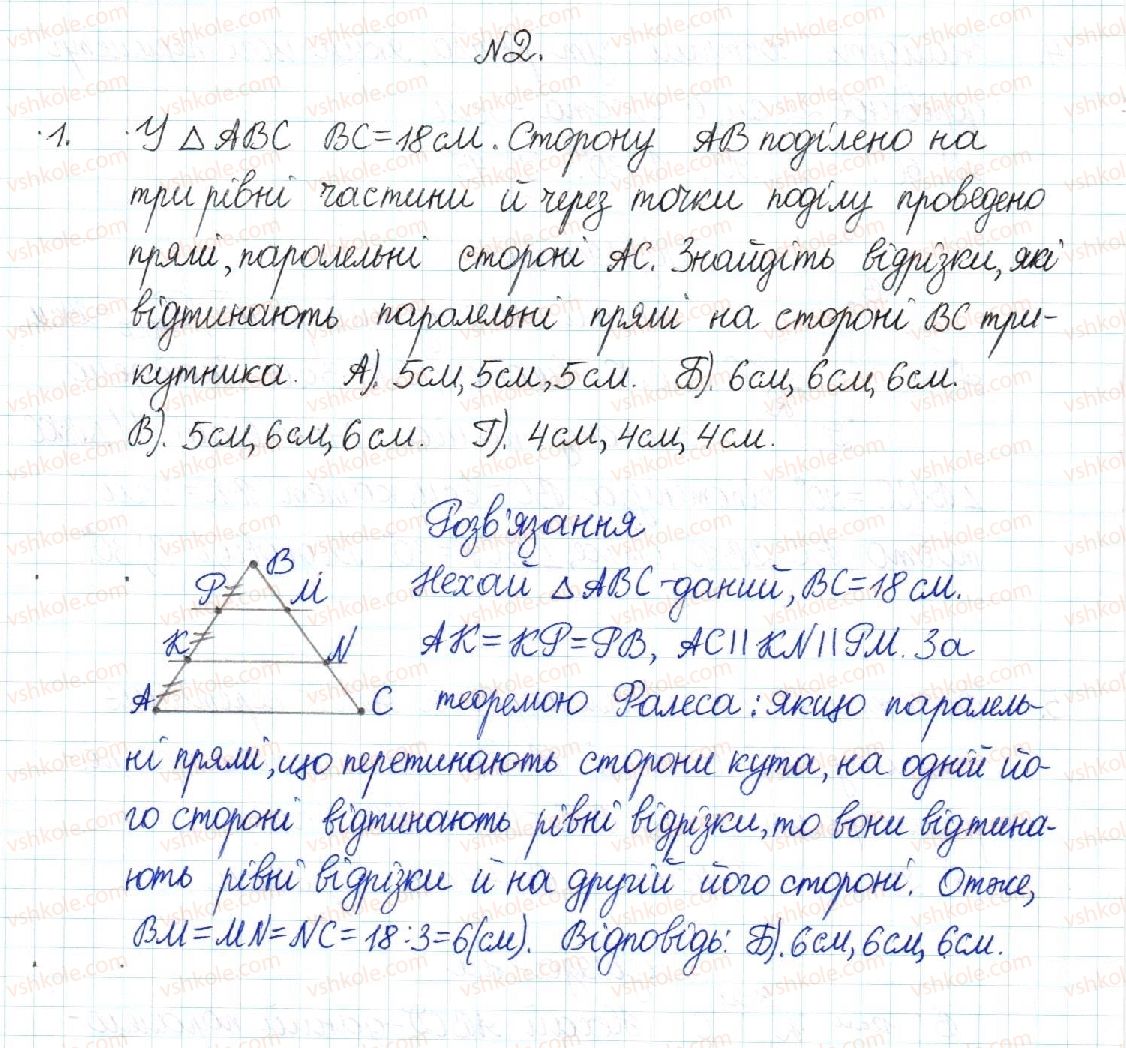 №2.
1. У △ABC BC=18см. Сторону AB поділено на
три рівні частини й через точки поділу проведено
прямі, паралельні стороні AC. Знайдіть відрізки, які
відтинають паралельні прямі на стороні BC три-
кутника. А). 5см, 5см, 5см. Б). 6см, 6см, 6см.
В). 5см, 6см, 6см. Г). 4см, 4см, 4см.
Розв'язання
B
P M
K N
A C
Нехай △ABC-даний, BC=18см.
AK=KP=PB, AC||KN||PM. За
теоремою Фалеса: якщо паралель-
ні прямі, що перетинають сторони кута, на одній йо-
го стороні відтинають рівні відрізки, то вони відтина-
ють рівні відрізки й на другій його стороні. Отже,
BM=MN=NC=18:3=6(см). Відповідь: Б). 6см, 6см, 6см.
vshkole.com